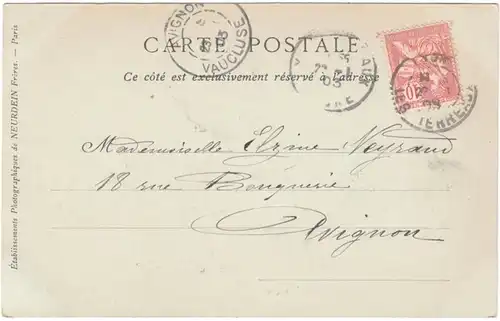 CARTE POSTALE
Ce côté est exclusivement réservé à l'adresse
AVIGNON
VAUCLUSE
03
TERREAUX
10
Mademoiselle Elzine Neyrand
18 rue Bonquerie
Avignon
Établissements Photographiques de NEURDEIN Frères. — Paris